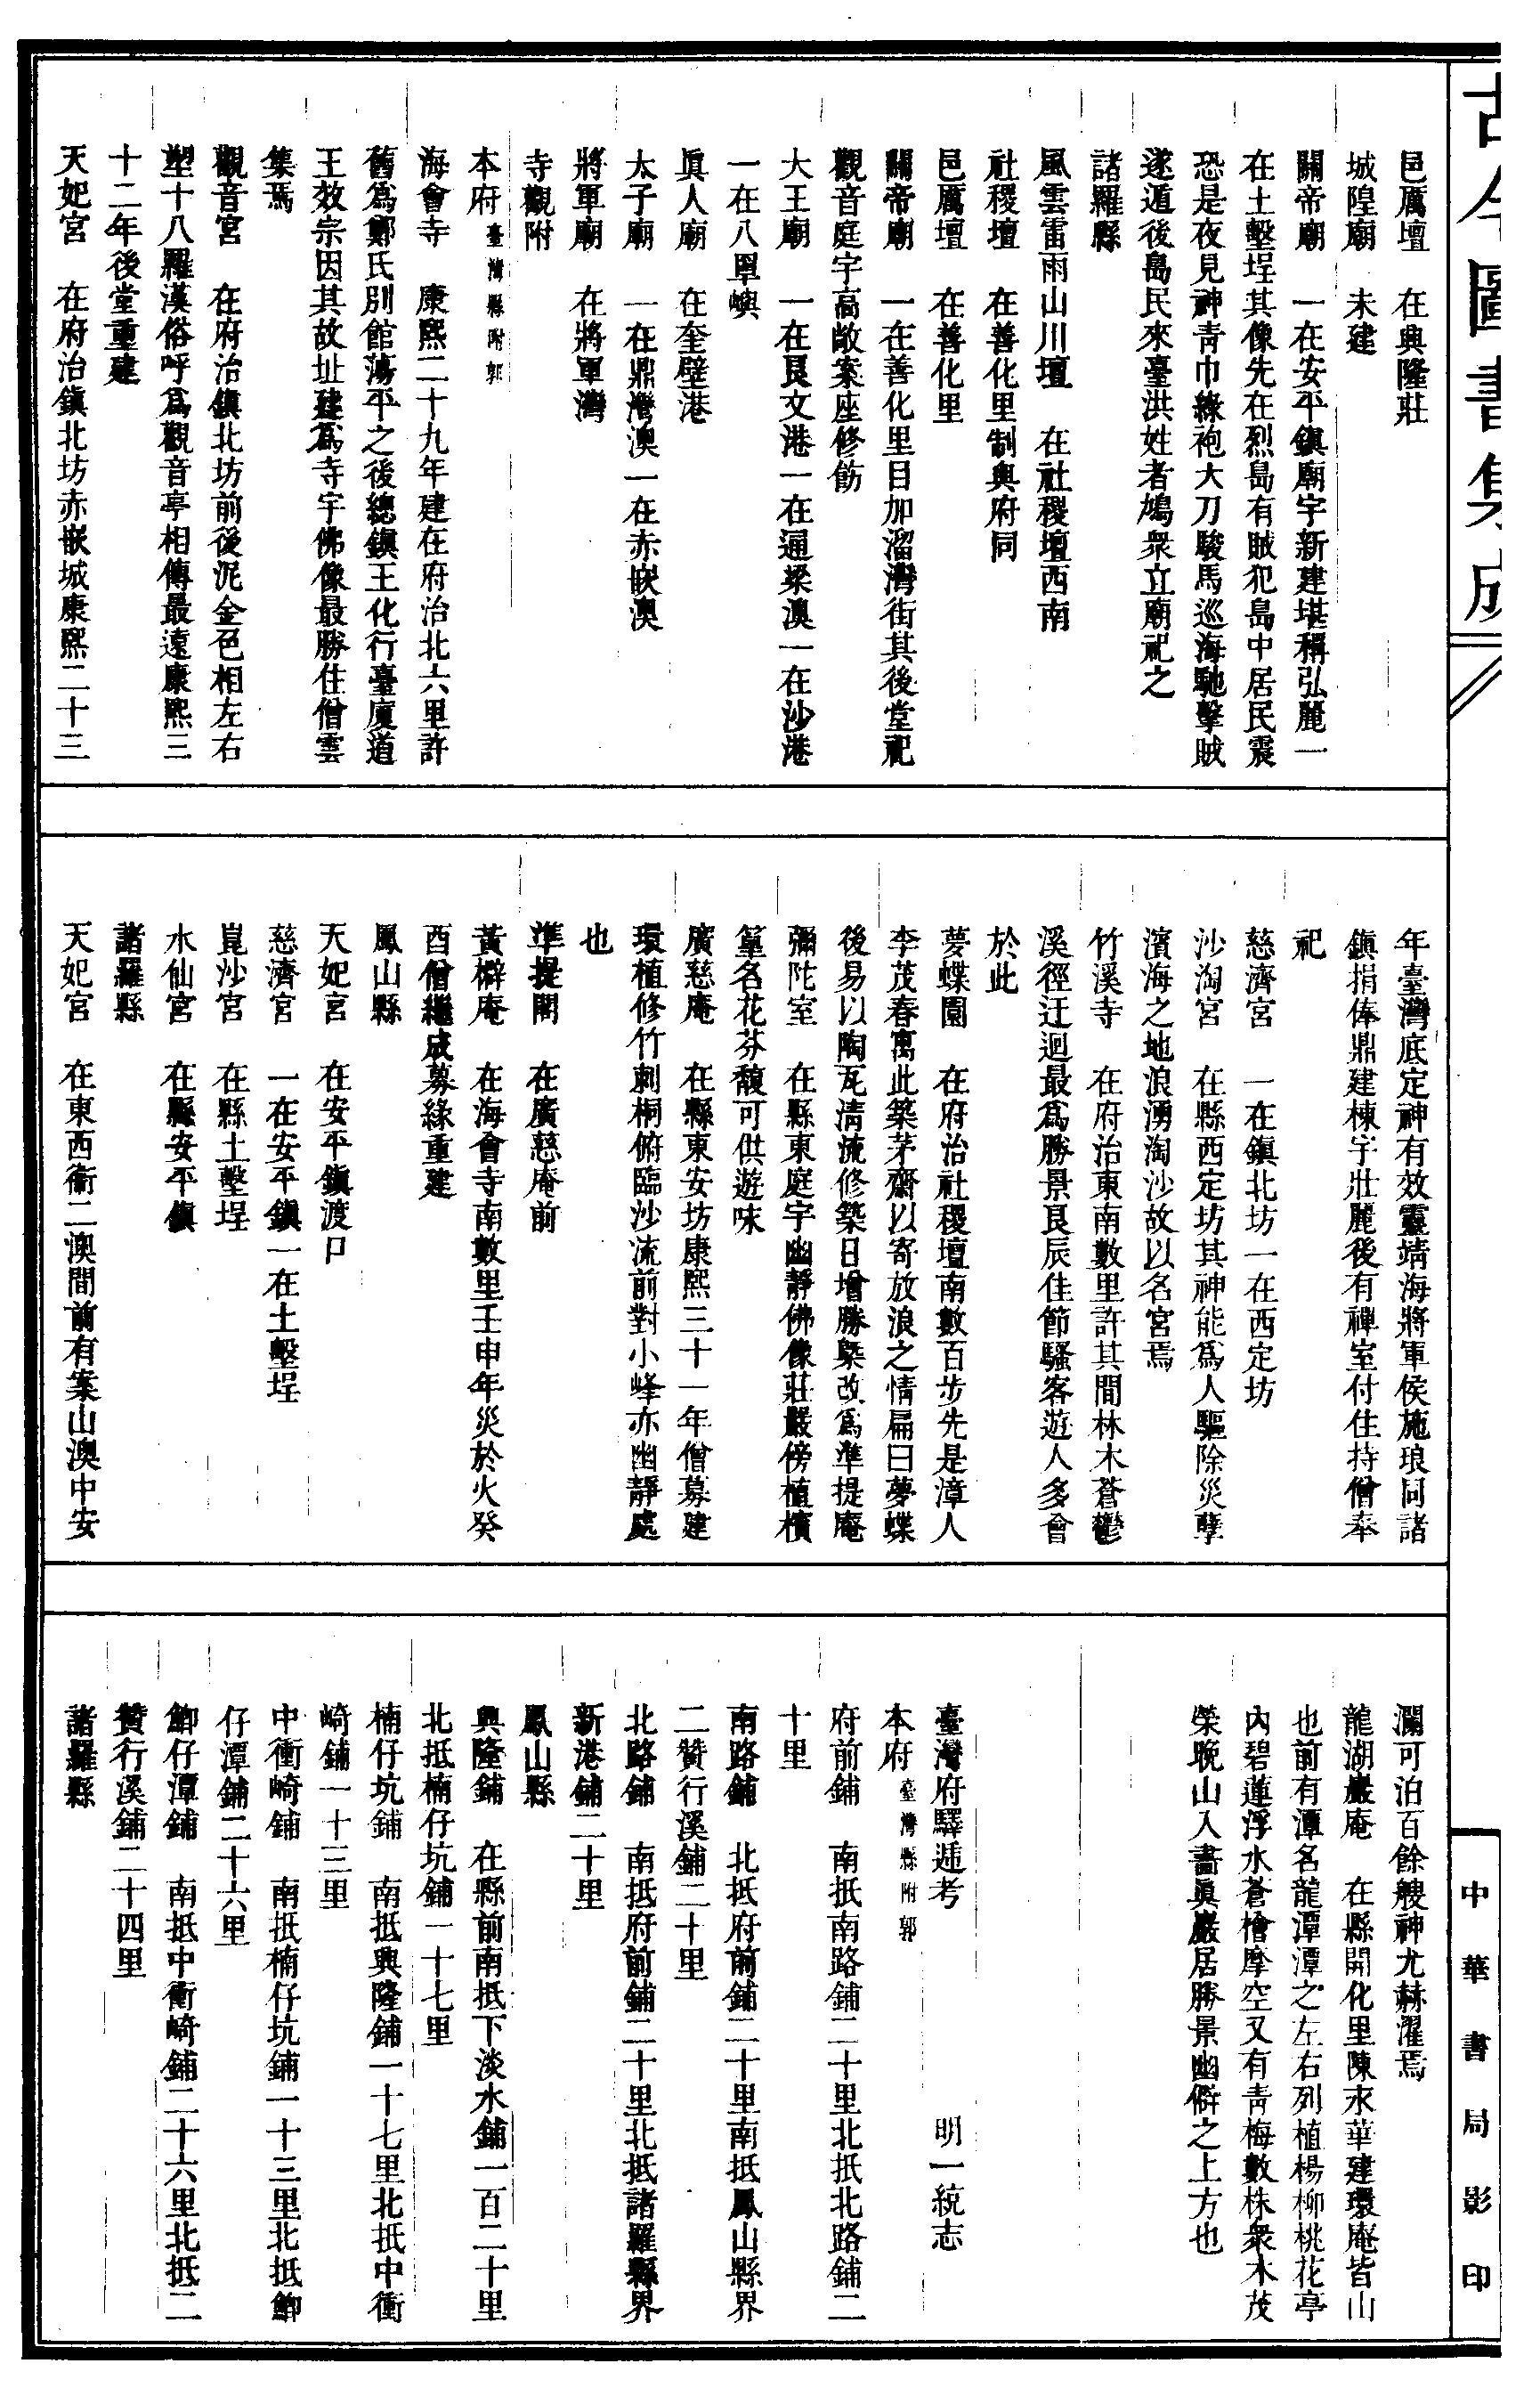 古今圖書集成
邑厲壇　在興隆莊
城隍廟　未建
關帝廟　一在安平鎭廟宇新建堪稱弘麗一
在土墼埕其像先在烈島有賊犯島中居民震
恐是夜見神靑巾綠袍大刀駿馬巡海馳擊賊
遂遁後島民來臺洪姓者鳩衆立廟祀之
諸羅縣
風雲雷雨山川壇　在社稷壇西南
社稷壇　在善化里制與府同
邑厲壇　在善化里
關帝廟　一在善化里目加溜灣街其後堂祀
觀音庭宇高敞案座修飭
大王廟　一在艮文港一在逼梁澳一在沙港
一在八罩嶼
眞人廟　在奎壁港
太子廟　一在鼎灣澳一在赤嵌澳
將軍廟　在將軍灣
寺觀附
本府臺灣縣附郭
海會寺　康熙二十九年建在府治北六里許
舊爲鄭氏別館蕩平之後總鎭王化行臺廈道
王效宗因其故址建爲寺宇佛像最勝住僧雲
集焉
觀音宮　在府治鎭北坊前後泥金色相左右
塑十八羅漢俗呼爲觀音亭相傳最遠康熙三
十二年後堂重建
天妃宮　在府治鎭北坊赤嵌城康熙二十三
年臺灣底定神有效靈靖海將軍侯施琅同諸
鎭捐俸鼎建棟宇壯麗後有禪室付住持僧奉
祀
慈濟宮　一在鎭北坊一在西定坊
沙淘宮　在縣西定坊其神能爲人驅除災孽
濱海之地浪湧淘沙故以名宮焉
竹溪寺　在府治東南數里許其間林木蒼鬱
溪徑迂迴最爲勝景艮辰佳節騷客遊人多會
於此
夢蝶園　在府治社稷壇南數百步先是漳人
李茂春寓此築茅齋以寄放浪之情扁曰夢蝶
後易以陶瓦淸流修築日增勝槩改爲準提庵
彌陀室　在縣東庭宇幽靜佛像莊嚴傍植檳
篁名花芬馥可供遊味
廣慈庵　在縣東安坊康熙三十一年僧募建
環植修竹刺桐俯臨沙流前對小峰亦幽靜處
也
準提閣　在廣慈庵前
黃檗庵　在海會寺南數里壬申年災於火癸
酉僧繼成募緣重建
鳳山縣
天妃宮　在安平鎭渡口
慈濟宮　一在安平鎭一在土墼埕
崑沙宮　在縣土墼埕
水仙宮　在縣安平鎭
諸羅縣
天妃宮　在東西衞二澳間前有案山澳中安
瀾可泊百餘艘神尤赫濯焉
龍湖巖庵　在縣開化里陳永華建環庵皆山
也前有潭名龍潭潭之左右列植楊柳桃花亭
內碧蓮浮水蒼檜摩空又有靑梅數株衆木茂
榮晚山入畫眞巖居勝景幽僻之上方也
臺灣府驛遞考　　　明一統志
本府臺灣縣附郭
府前鋪　南抵南路鋪二十里北抵北路鋪二
十里
南路鋪　北抵府前鋪二十里南抵鳳山縣界
二贊行溪鋪二十里
北路鋪　南抵府前鋪二十里北抵諸羅縣界
新港鋪二十里
鳳山縣
興隆鋪　在縣前南抵下淡水鋪一百二十里
北抵楠仔坑鋪一十七里
楠仔坑鋪　南抵興隆鋪一十七里北抵中衝
崎鋪一十三里
中衝崎鋪　南抵楠仔坑鋪一十三里北抵鯽
仔潭鋪二十六里
鯽仔潭鋪　南抵中衝崎鋪二十六里北抵二
贊行溪鋪二十四里
諸羅縣
中華書局影印